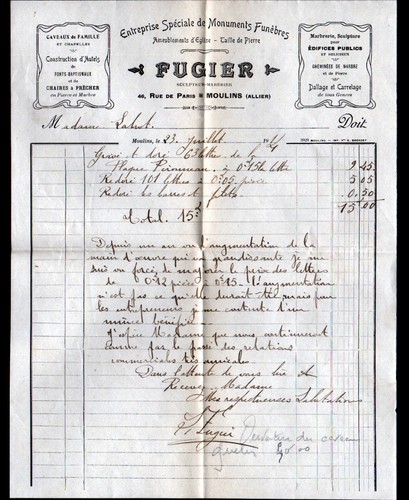 Entreprise Spéciale de Monuments Funèbres
Ameublements d'Eglise - Taille de Pierre
CAVEAUX DE FAMILLE
ET CHAPELLES
Construction d'Autels
DE FONTS-BAPTISMAUX
ET DE
CHAIRES A PRÊCHER
en Pierre et Marbre
FUGIER
SCULPTEUR-MARBRIER
46, RUE DE PARIS
MOULINS (ALLIER)
Marbrerie, Sculpture
POUR
ÉDIFICES PUBLICS
ET RELIGIEUX
CHEMINÉE DE MARBRE
et de Pierre
Dallage et Carrelage
de tous Genres
Madame
Doit
Moulins, le 23 Juillet 19
Gravé et doré 63 lettres de la
Plaque à 0.15 la lettre 9.45
Redoré 101 lettres à 0.05 pièce 5.05
Redoré les barres et 0.50
Total 15 15.00
Depuis un an ou l'augmentation de la
main d'œuvre va en grandissant je me
suis vu forcé de majorer le prix des lettres
de 0.12 pièce à 0.15. L'augmentation
n'est pas ce qu'elle devrait être mais pour
les entrepreneurs je me contente d'un
mince bénéfice
J'espère Madame que nous continuerons
comme par le passé des relations
commerciales très amicales
Dans l'attente de vous lire
Recevez Madame
Mes respectueuses Salutations
Fugier